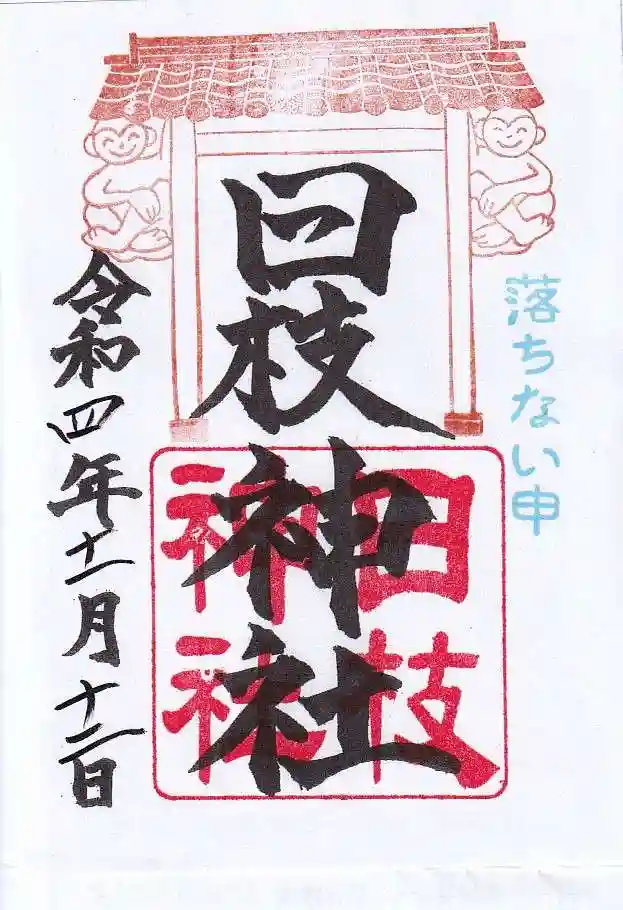 落ちない申
日枝神社
日枝
神社
令和四年十一月十二日